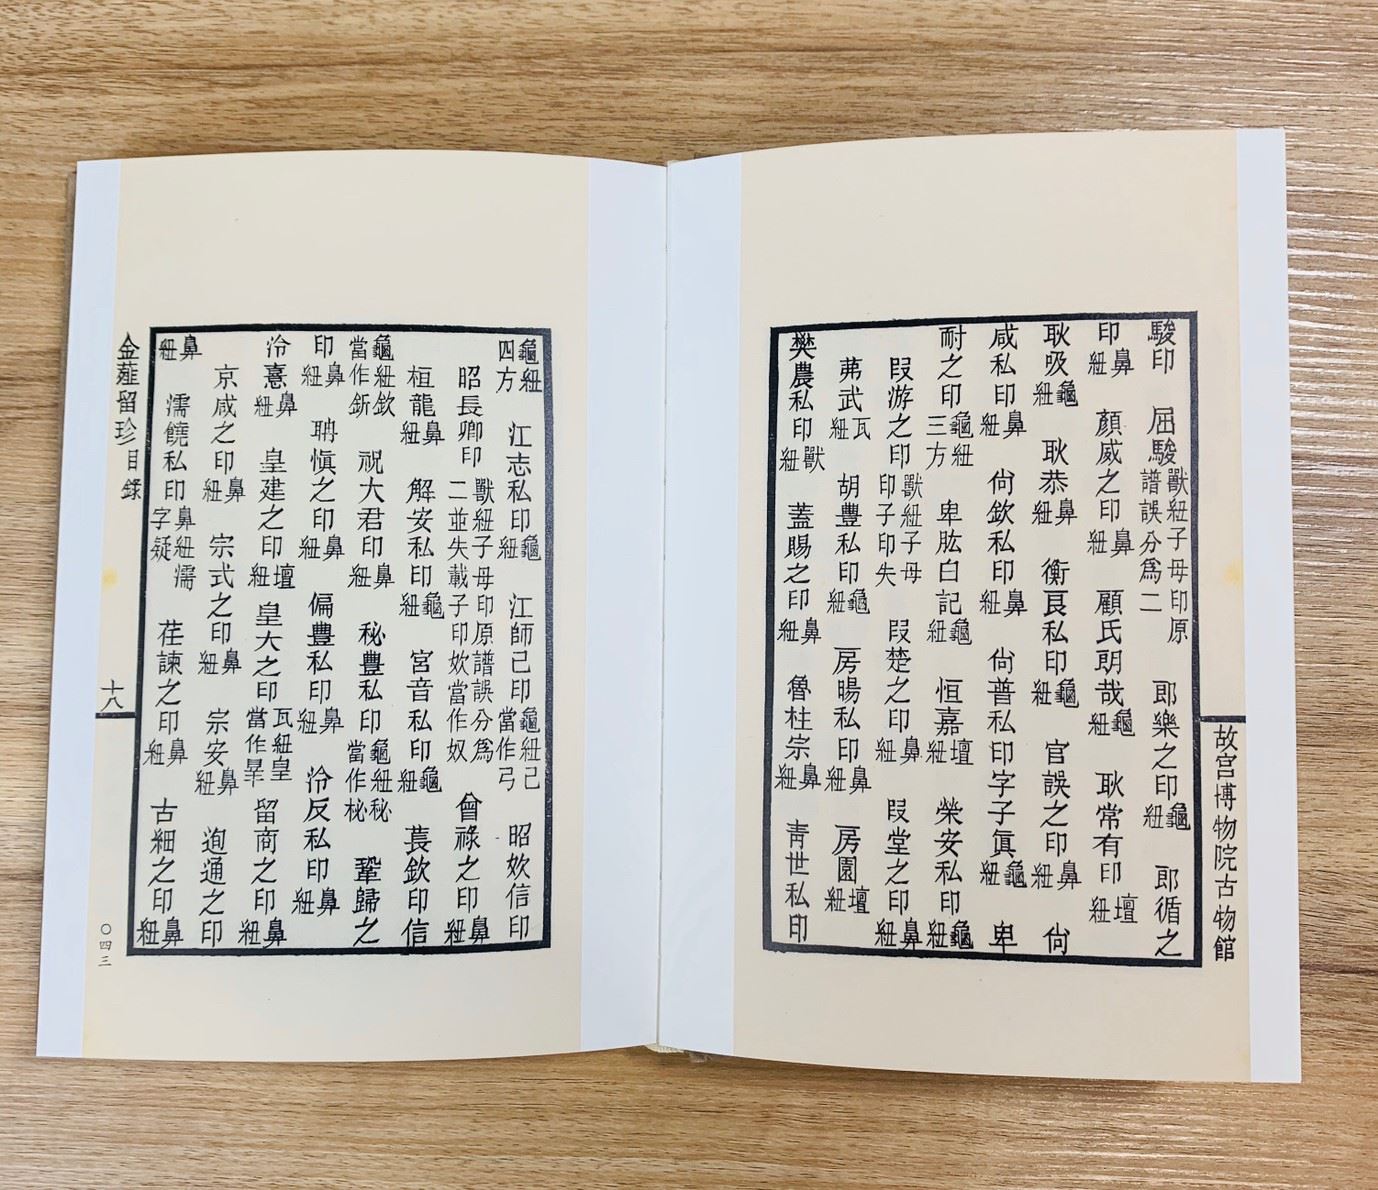 駿印 屈駿 獸紐子母印原譜誤分爲二 郎樂之印 龜紐 郎循之
印 鼻紐 顏威之印 鼻紐 顧氏朗哉 龜紐 耿常有印 壇紐
耿吸 龜紐 耿恭 鼻紐 衡良私印 龜紐 官誤之印 鼻紐 尙
咸私印 鼻紐 尙欽私印 鼻紐 尙普私印字子眞 龜紐 卑
耐之印 龜紐三方 卑肱白記 龜紐 恒嘉 壇紐 榮安私印 龜紐
段游之印 獸紐子母印子印失 段楚之印 鼻紐 段堂之印 鼻紐
茀武 瓦紐 胡豐私印 龜紐 房暘私印 鼻紐 房園 壇紐
樊農私印 獸紐 蓋賜之印 鼻紐 魯柱宗 鼻紐 靑世私印
故宮博物院古物館
龜紐四方 江志私印 龜紐 江師己印 龜紐己當作弓 昭妏信印
昭長卿印 獸紐子母印原譜誤分爲二並失載子印妏當作奴 曾祿之印 鼻紐
桓龍 鼻紐 解安私印 龜紐 宮音私印 龜紐 萇欽印信
龜紐欽當作釿 祝大君印 鼻紐 秘豐私印 龜紐秘當作柲 鞏歸之
印 鼻紐 聃愼之印 鼻紐 偏豐私印 鼻紐 泠反私印 鼻紐
泠憙 鼻紐 皇建之印 壇紐 皇大之印 瓦紐皇當作辠 留商之印 鼻紐
京咸之印 鼻紐 宗式之印 鼻紐 宗安 鼻紐 通之印
鼻紐 濡饒私印 鼻紐濡字疑 茬諫之印 鼻紐 古細之印 鼻紐
金薤留珍 目錄 十八 〇四三